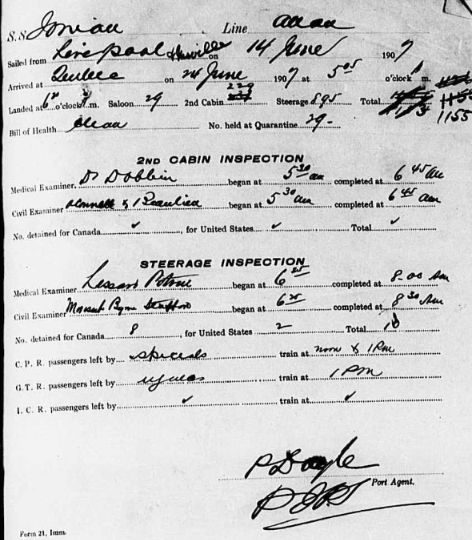 S.S. Ionian Line Allan
Sailed from Liverpool on 14 June 1907
Arrived at Quebec on 24 June 1907 at 5 05 o'clock m.
Landed at 6 o'clock m. Saloon 29 2nd Cabin 229 Steerage 895 Total 1155
Bill of Health Clean No. held at Quarantine 29
2ND CABIN INSPECTION
Medical Examiner Dr Dobbin began at 5 30 am completed at 6 45 am
Civil Examiner began at 5 30 am completed at 6 45 am
No. detained for Canada ✓, for United States ✓ Total ✓
STEERAGE INSPECTION
Medical Examiner began at 6 completed at 8.00 am
Civil Examiner began at 6 completed at 8 30 am
No. detained for Canada 8 for United States 2 Total 10
C. P. R. passengers left by specials train at noon & 1 Pm
G. T. R. passengers left by train at 1 PM
I. C. R. passengers left by ✓ train at ✓
P Doyle
Port Agent.
Form 21, Imm.